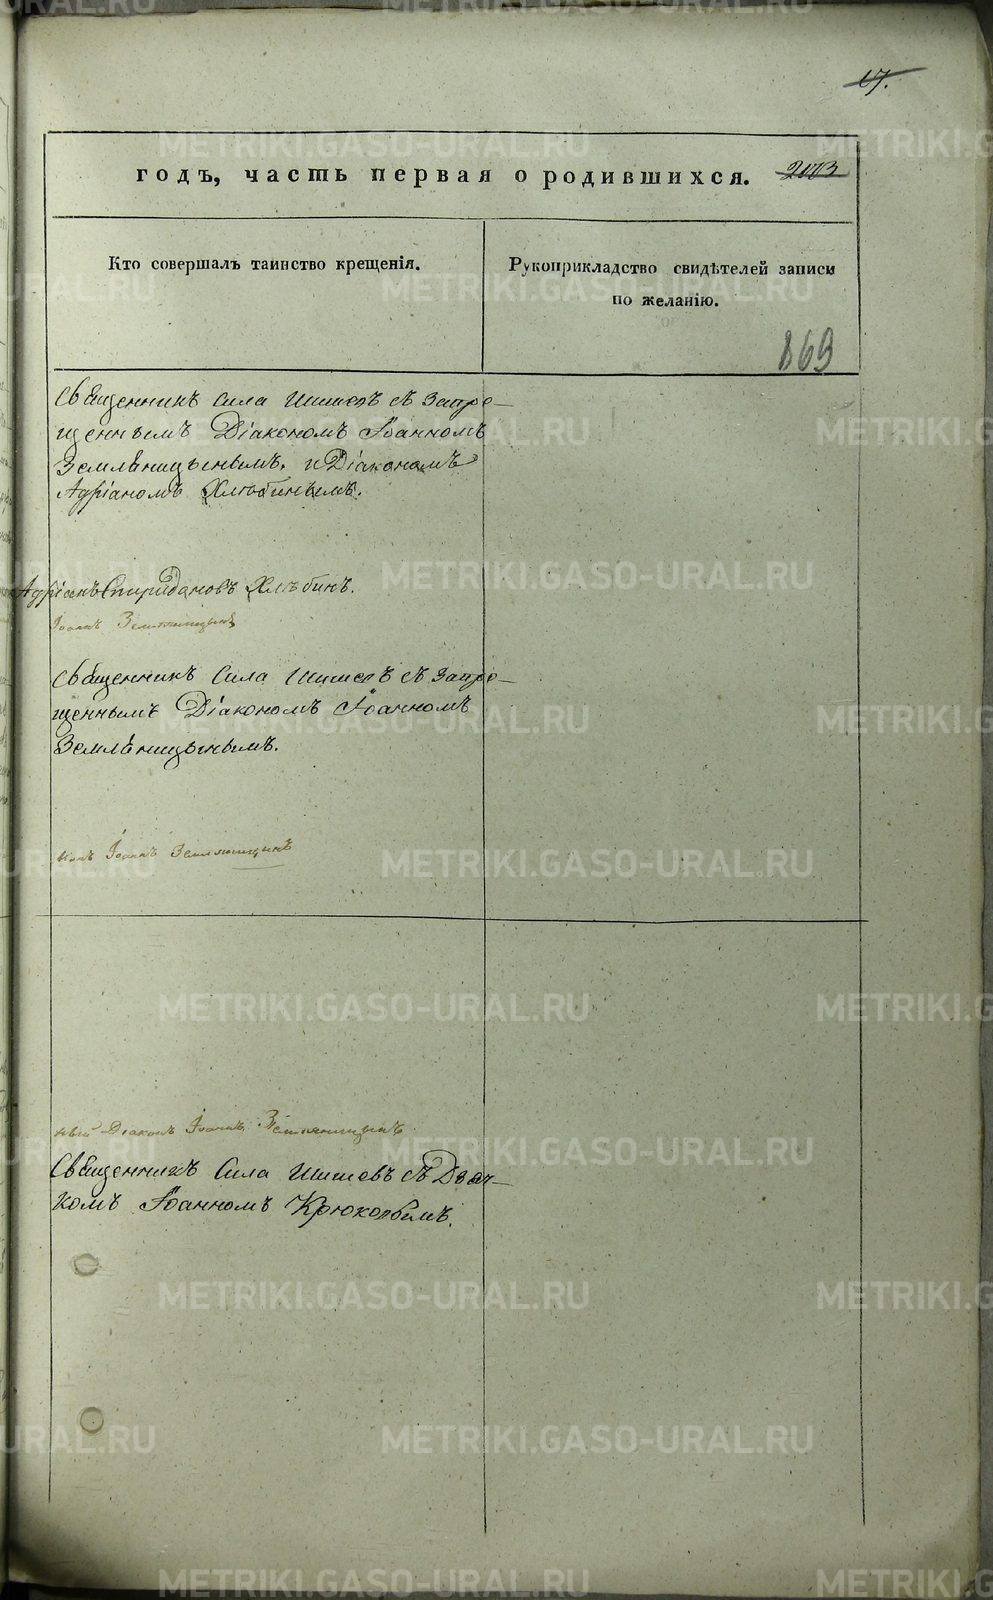 17.
годъ, часть первая о родившихся.
Кто совершалъ таинство крещенія.
Рукоприкладство свидѣтелей записи
по желанію.
869
Священникъ Сила Шишевъ съ запре-
щеннымъ Діакономъ Іоанномъ
Земляницынымъ, и Діакономъ
Адріаномъ Хлѣбинымъ.
Адріанъ Спиридоновъ Хлѣбинъ.
Іоаннъ Земляницынъ
Священникъ Сила Шишевъ съ запре-
щеннымъ Діакономъ Іоанномъ
Земляницынымъ.
Іоаннъ Земляницынъ
Діаконъ Іоаннъ Земляницынъ
Священникъ Сила Шишевъ съ Дьяч-
комъ Іоанномъ Крюковымъ.
METRIKI.GASO-URAL.RU